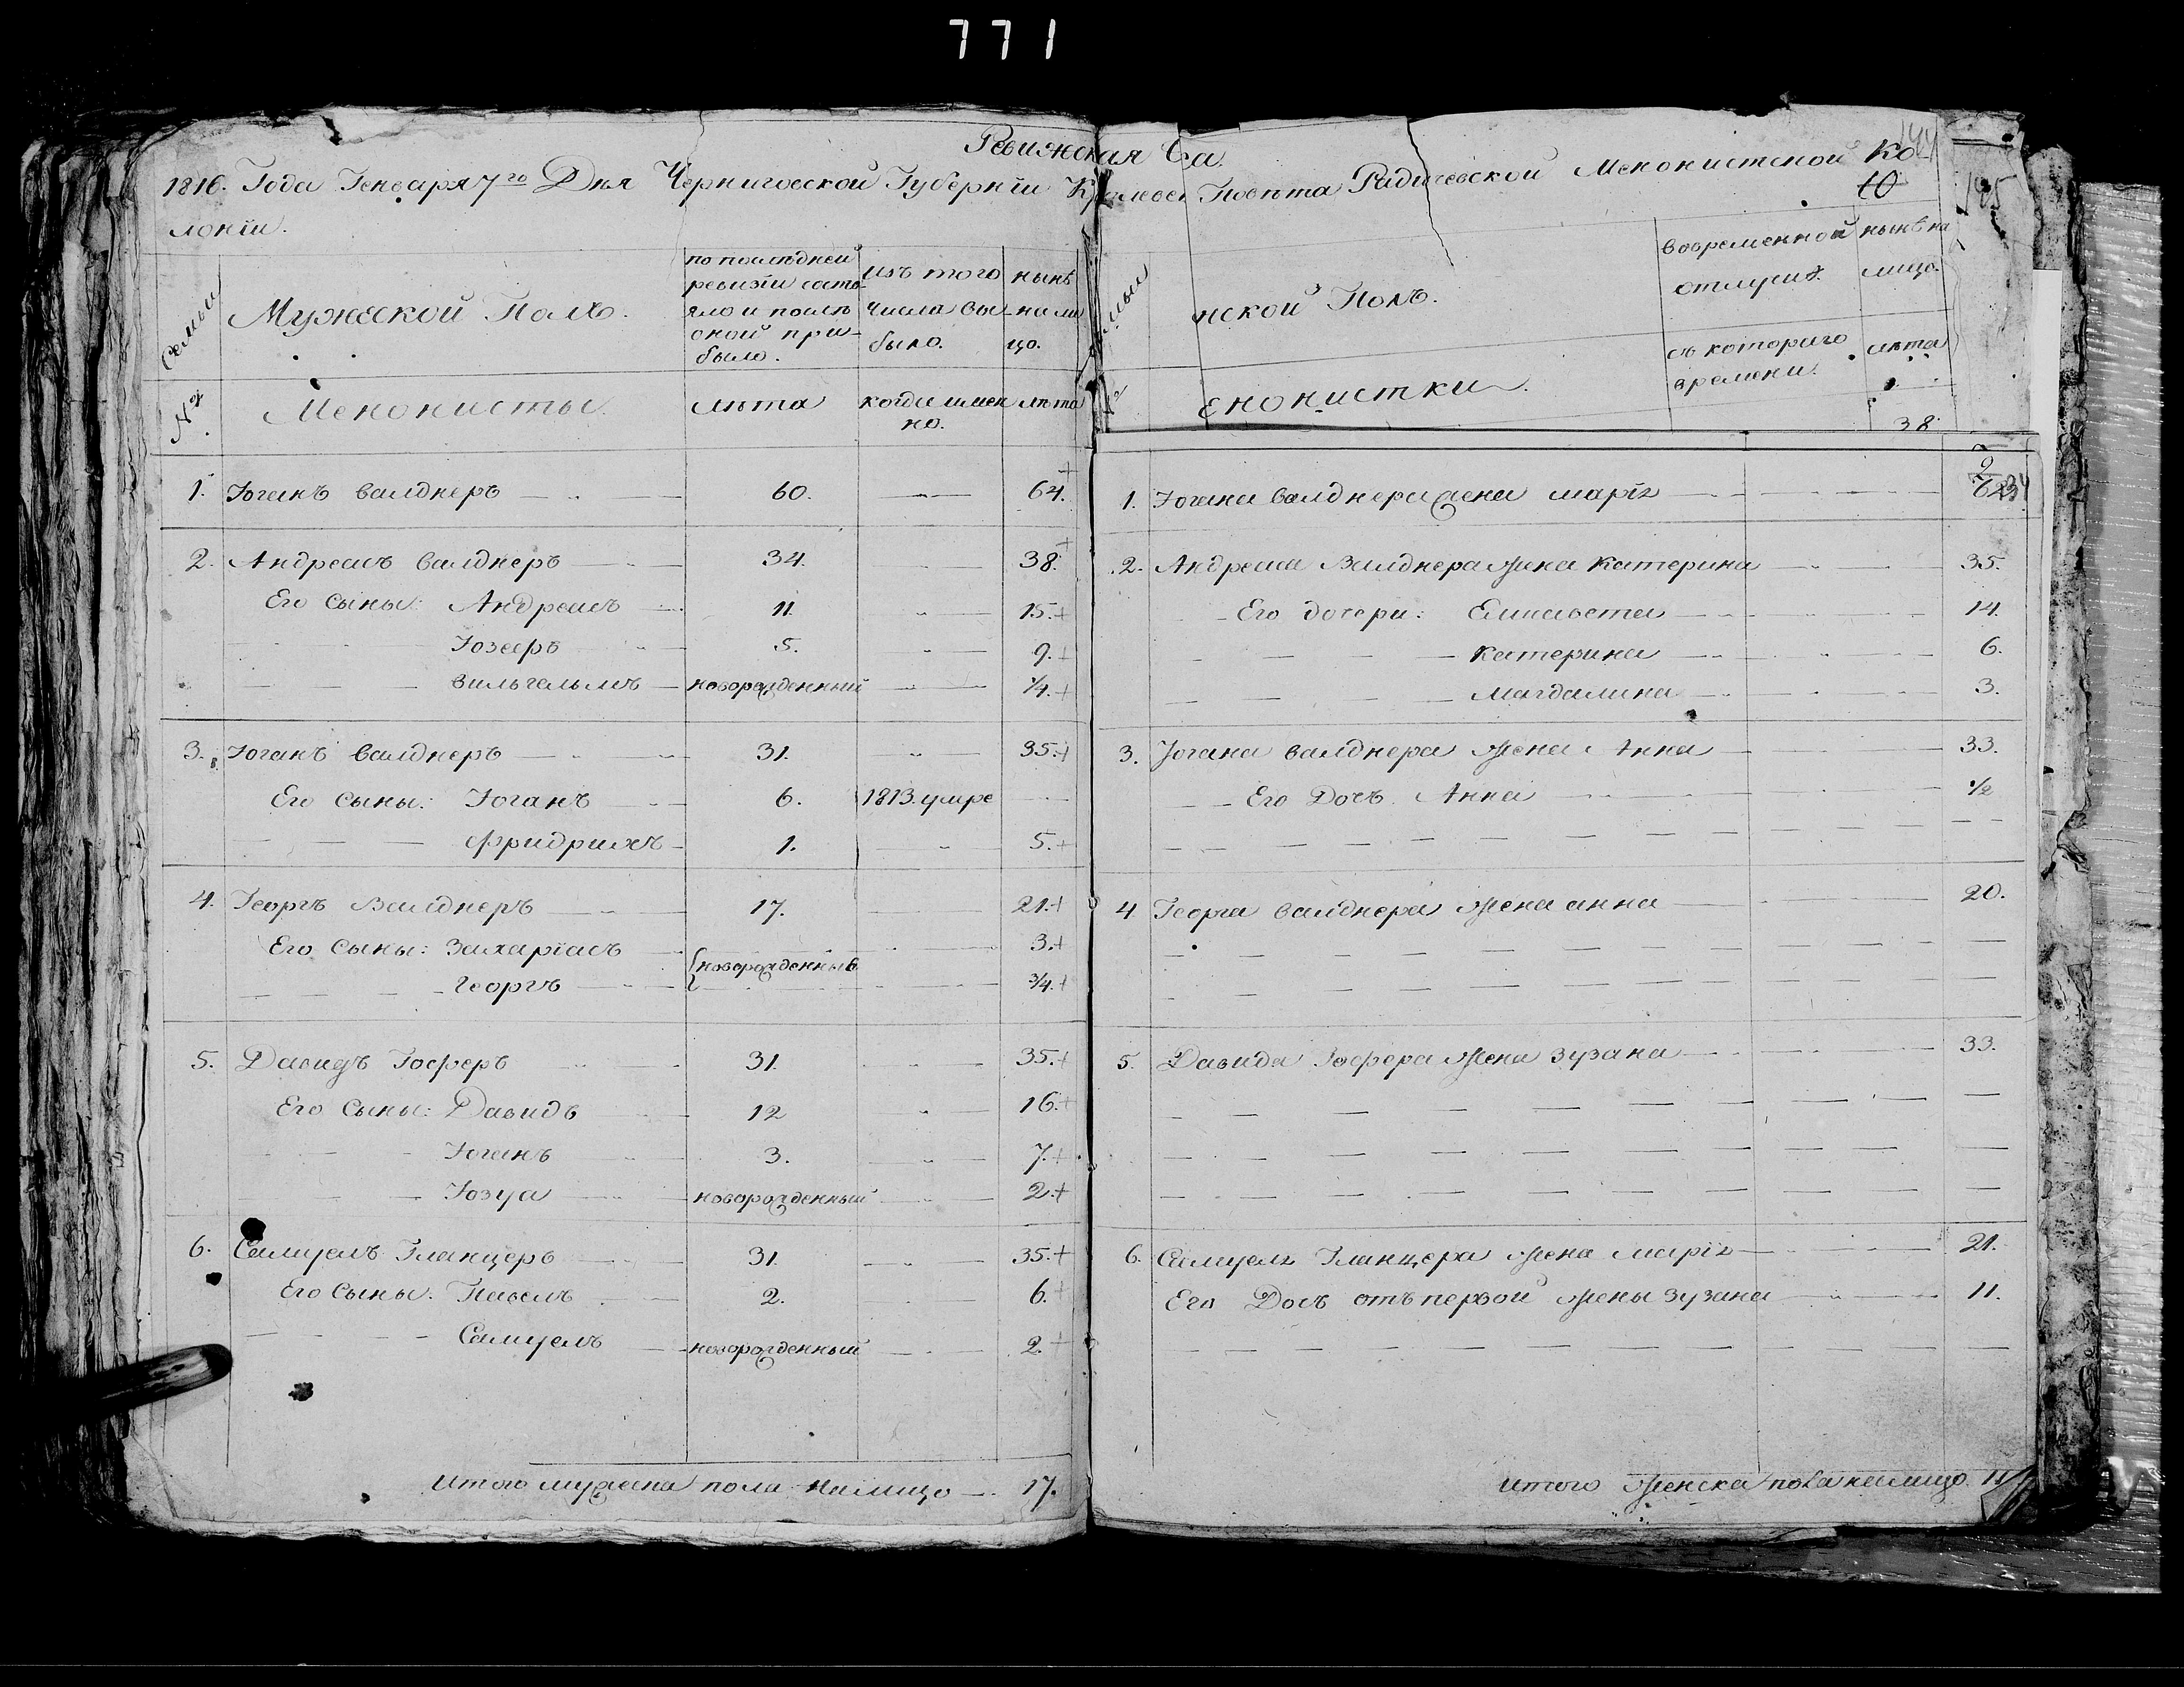 771
Ревижская Ска
1816. Года Генваря 7го Дня Черниговской Губернїи Повѣта Радичевской Менонистской Ко
лонїи.
144
10
195
Семьи
Мужеской Полъ.
по послѣдней ревизїи состояло и послѣ оной прибыло.
Изъ того числа выбыло.
нынѣ на лицо.
№
Менонисты
лѣта
когда имен но.
лѣта
1. Іоганъ валднеръ 60. 64.
2. Андреасъ валднеръ 34. 38.
Его сыны: Андреасъ 11. 15.
Іозефъ 5. 9.
Вильгельмъ новорожденный 1/4.
3. Іоганъ валднеръ 31. 35.
Его сыны: Іоганъ 6. 1813. умре
Фридрихъ 1. 5.
4. Георгъ Валднеръ 17. 21.
Его сыны: Захарїасъ 3.
новорожденные
Георгъ 3/4.
5. Давидъ Гоферъ 31. 35.
Его сыны: Давидъ 12 16.
Іоганъ 3. 7.
Іозуа новорожденный 2.
6. Самуелъ Гланцеръ 31. 35.
Его сыны: Павелъ 2. 6.
Самуелъ новорожденный 2.
Итого мужеска пола налицо 17.
мьи
нской Полъ.
вовременной отлучкѣ
нынѣ на лицо.
съ котораго времени.
лѣта
№
енонистки
38.
1. Іогана валднера жена марїя
2. Андреаса Валднера жена Катерина 35.
Его дочери: Елисавета 14.
Катерина 6.
Магдалина 3.
3. Іогана валднера жена Анна 33.
Его Дочь Анна 1/2
4 Георга валднера жена анна 20.
5. Давида Гофера жена Зузана 33.
6. Самуеля Гланцера жена марїя 21.
Его Дочь отъ первой жены Зузана 11.
итого женска пола налицо. 11